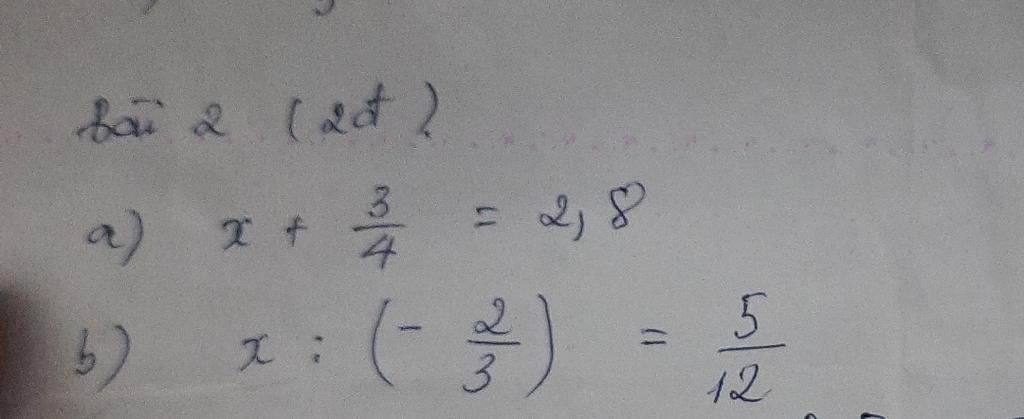 bài 2 (2đ)
a) x + 3/4 = 2,8
b) x : (- 2/3) = 5/12